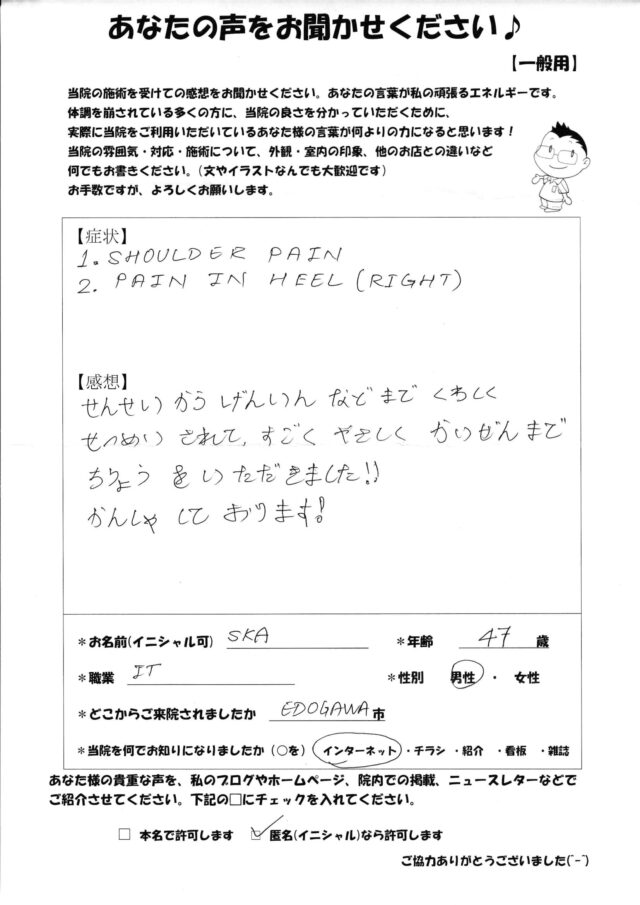 あなたの声をお聞かせください♪
【一般用】
当院の施術を受けての感想をお聞かせください。あなたの言葉が私の頑張るエネルギーです。
体調を崩されている多くの方に、当院の良さを分かっていただくために、
実際に当院をご利用いただいているあなた様の言葉が何よりの力になると思います！
当院の雰囲気・対応・施術について、外観・室内の印象、他のお店との違いなど
何でもお書きください。（文やイラストなんでも大歓迎です）
お手数ですが、よろしくお願いします。
【症状】
1. SHOULDER PAIN
2. PAIN IN HEEL (RIGHT)
【感想】
せんせい から げんいん などまで くわしく
せつめい されて, すごく やさしく かいぜんまで
ちりょう を いただきました!!
かんしゃ して おります!
*お名前(イニシャル可) SKA *年齢 47 歳
*職業 IT *性別 男性 ・ 女性
*どこからご来院されましたか EDOGAWA 市
*当院を何でお知りになりましたか（○を） インターネット ・チラシ ・紹介 ・看板 ・雑誌
あなた様の貴重な声を、私のブログやホームページ、院内での掲載、ニュースレターなどで
ご紹介させてください。下記の□にチェックを入れてください。
□ 本名で許可します ☑ 匿名(イニシャル)なら許可します
ご協力ありがとうございました(^-^)